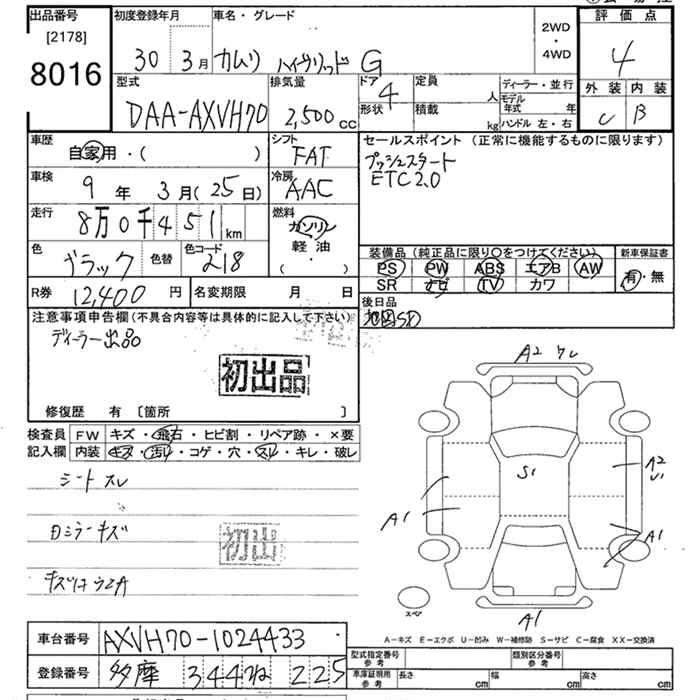 出品番号
[2178]
8016
初度登録年月
30年 3月
車名・グレード
カムリ ハイブリッド G
2WD
・
4WD
評価点
4
外装 内装
C B
型式
DAA-AXVH70
排気量
2,500cc
ドア
4
形状
定員
人
積載
kg
ディーラー・並行
モデル年式 年
ハンドル 左・右
車歴
自家用・( )
シフト
FAT
車検
9年 3月(25日)
冷房
AAC
走行
8万0千451km
燃料
ガソリン
軽油
( ・ )
色
ブラック
色替
色コード
218
R券
12,400円
名変期限 月 日
セールスポイント(正常に機能するものに限ります)
プッシュスタート
ETC2.0
装備品(純正品に限り○をつけてください)
PS PW ABS エアB AW
SR ナビ TV カワ
新車保証書
有・無
後日品
地図SD
注意事項申告欄(不具合内容等は具体的に記入して下さい)
ディーラー出品
初出品
修復歴 有 [箇所 ]
検査員
記入欄
FW キズ・飛石・ヒビ割・リペア跡・×要
内装 キズ・汚れ・コゲ・穴・スレ・キレ・破レ
シートスレ
Dミラーキズ
初出
A2 ワレ
S1
A2
U1
A1
A1
A1
スペア
A-キズ E-エクボ U-凹み W-補修跡 S-サビ C-腐食 XX-交換済
車台番号
AXVH70-1024433
登録番号
多摩 344 ね 225
型式指定番号
参考
類別区分番号
参考
車庫証明用
参考
長さ cm
幅 cm
高さ cm